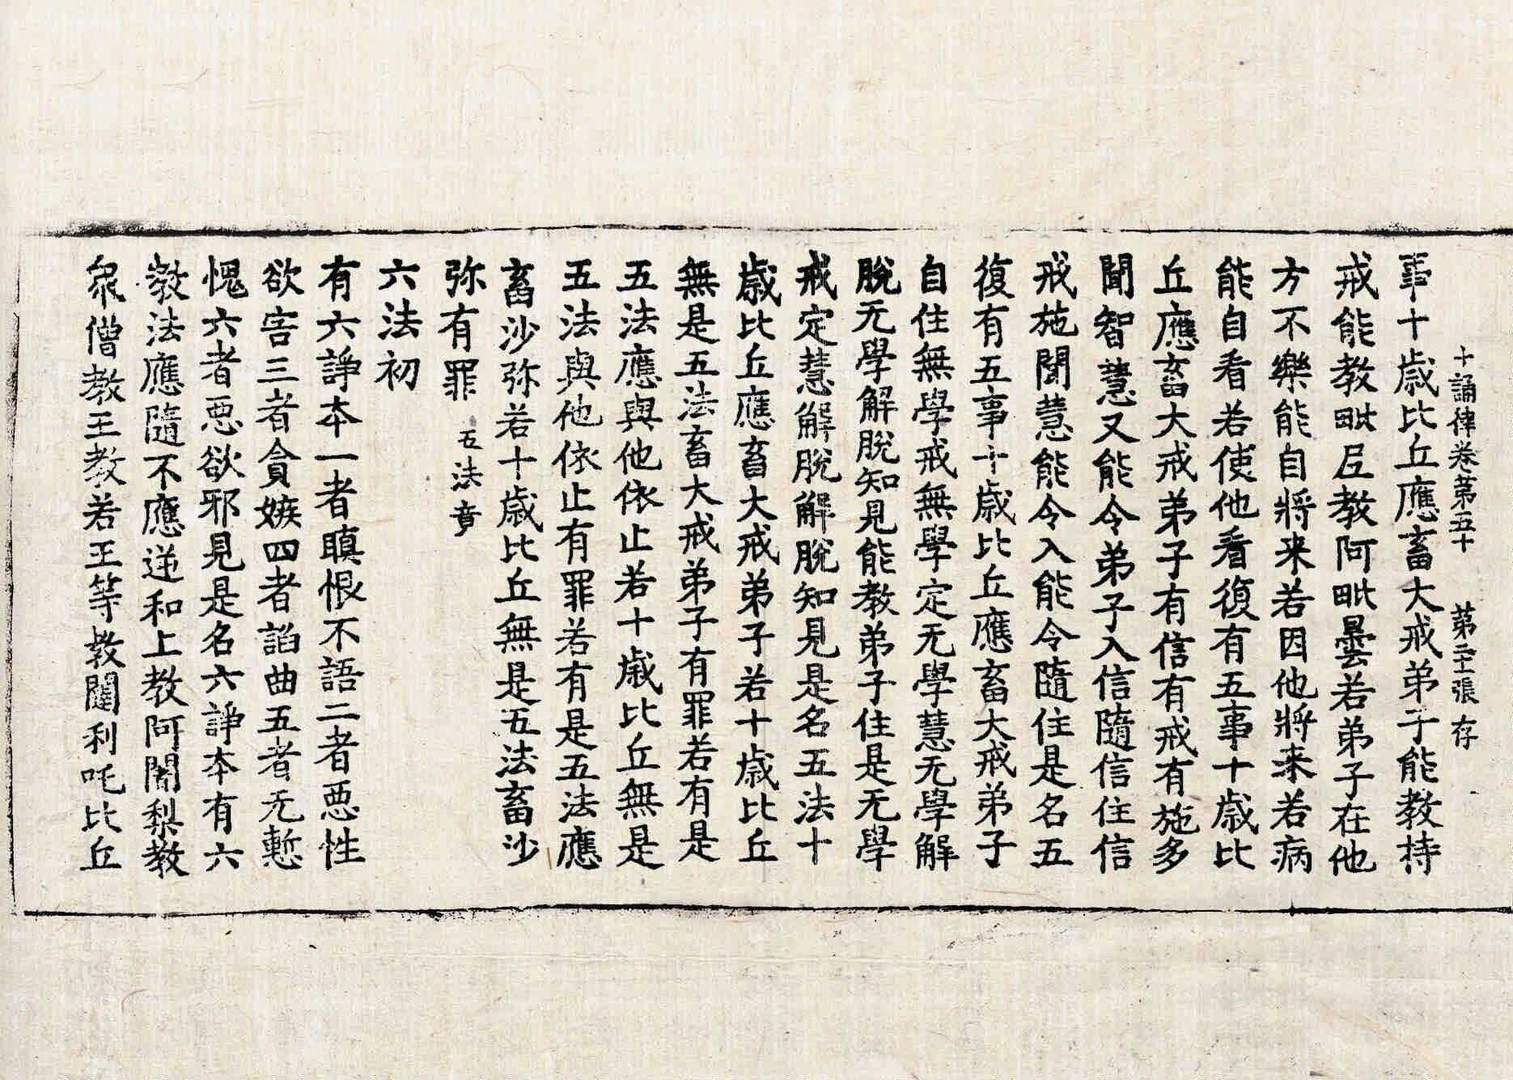 十誦律卷第五十　第二十二張　存
事十歲比丘應畜大戒弟子能教持
戒能教毗尼教阿毗曇若弟子在他
方不樂能自將来若因他將来若病
能自看若使他看復有五事十歲比
丘應畜大戒弟子有信有戒有施多
聞智慧又能令弟子入信隨信住信
戒施聞慧能令入能令隨住是名五
復有五事十歲比丘應畜大戒弟子
自住無學戒無學定无學慧无學解
脫无學解脫知見能教弟子住是无學
戒定慧解脫解脫知見是名五法十
歲比丘應畜大戒弟子若十歲比丘
無是五法畜大戒弟子有罪若有是
五法應與他依止若十歲比丘無是
五法與他依止有罪若有是五法應
畜沙弥若十歲比丘無是五法畜沙
弥有罪　五法竟
六法初
有六諍本一者瞋恨不語二者惡性
欲害三者貪嫉四者諂曲五者无慙
愧六者惡欲邪見是名六諍本有六
教法應隨不應逆和上教阿闍梨教
眾僧教王教若王等教闥利吒比丘